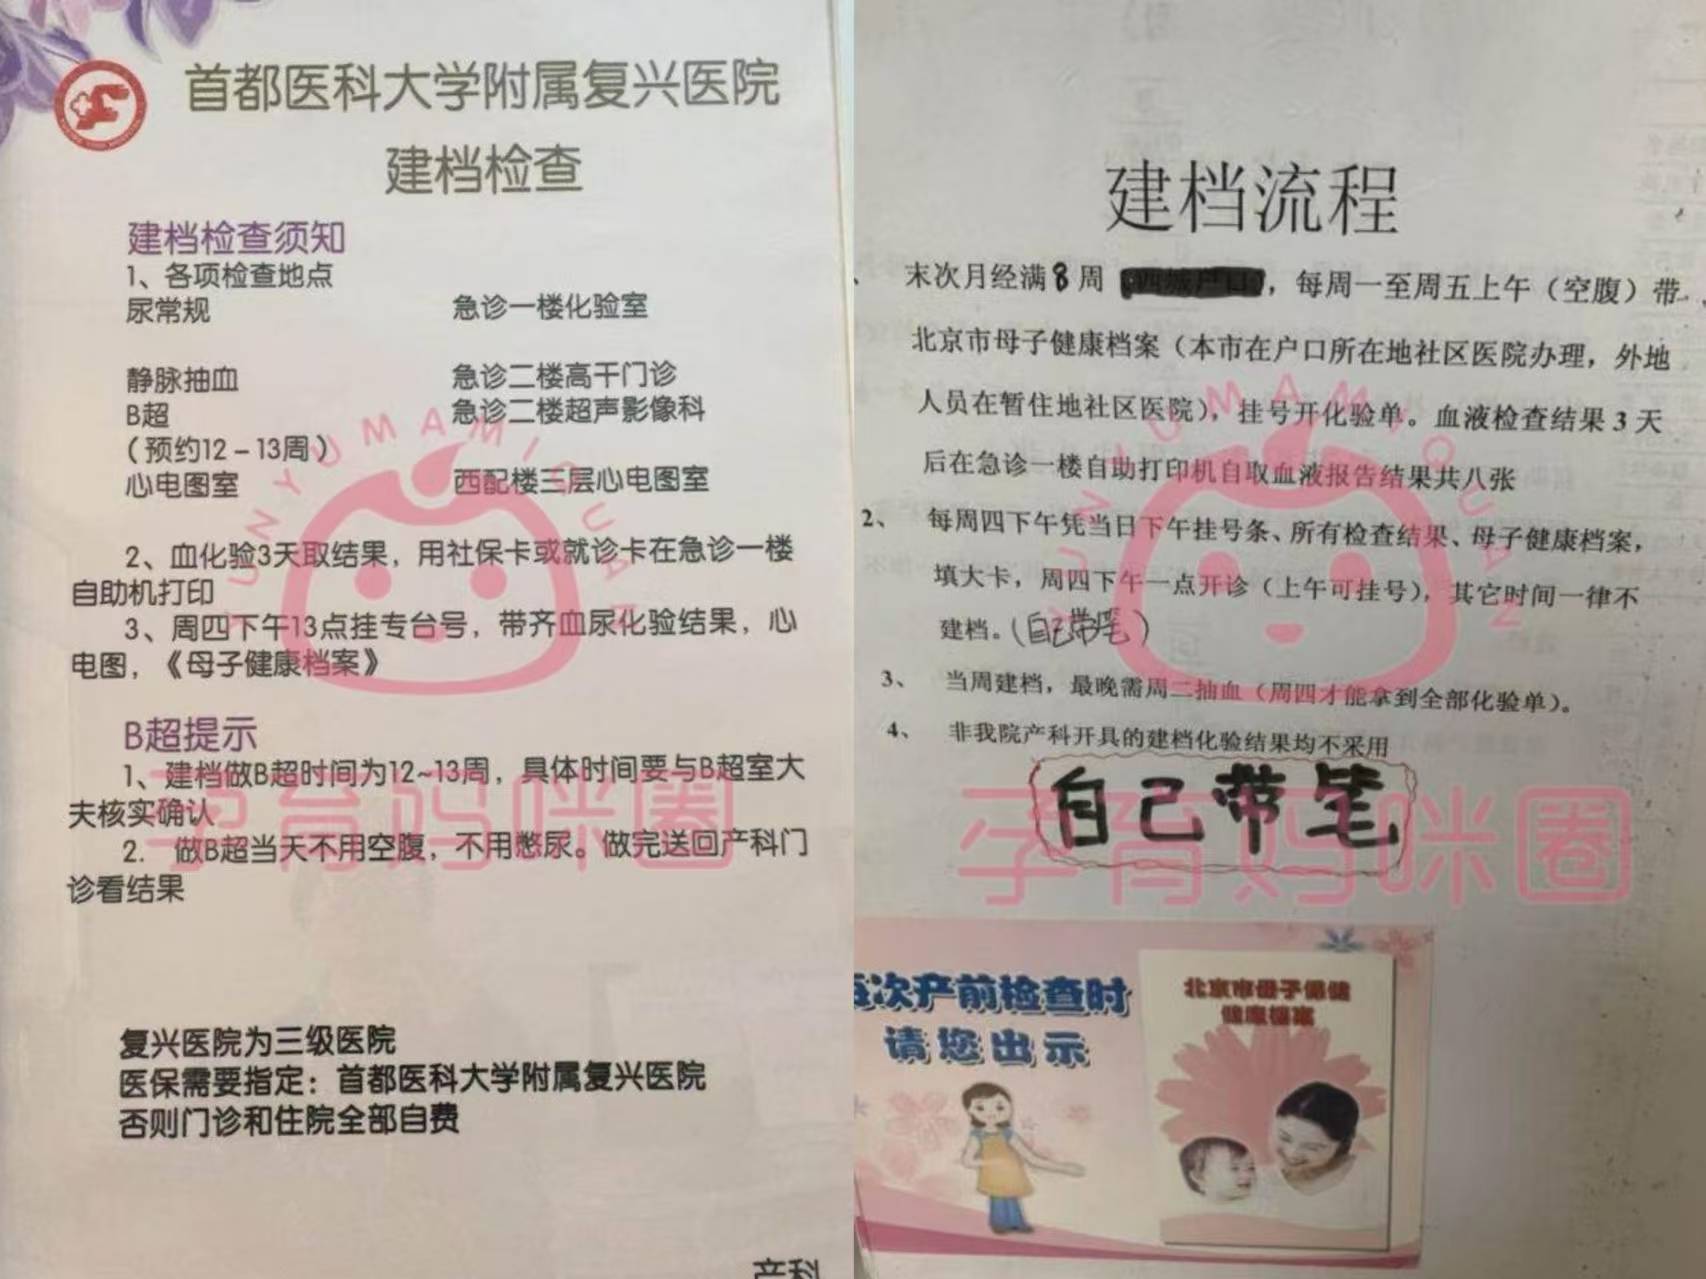 首都医科大学附属复兴医院
建档检查
建档检查须知
1、各项检查地点
尿常规 急诊一楼化验室
静脉抽血 急诊二楼高干门诊
B超 急诊二楼超声影像科
（预约12－13周）
心电图室 西配楼三层心电图室
2、血化验3天取结果，用社保卡或就诊卡在急诊一楼
自助机打印
3、周四下午13点挂专台号，带齐血尿化验结果，心
电图，《母子健康档案》
B超提示
1、建档做B超时间为12~13周，具体时间要与B超室大
夫核实确认
2. 做B超当天不用空腹，不用憋尿。做完送回产科门
诊看结果
复兴医院为三级医院
医保需要指定：首都医科大学附属复兴医院
否则门诊和住院全部自费
产科
YUNYUMAMIQUAN
孕育妈咪圈
建档流程
、 末次月经满8周 ，每周一至周五上午（空腹）带
北京市母子健康档案（本市在户口所在地社区医院办理，外地
人员在暂住地社区医院），挂号开化验单。血液检查结果3天
后在急诊一楼自助打印机自取血液报告结果共八张
2、 每周四下午凭当日下午挂号条、所有检查结果、母子健康档案，
填大卡，周四下午一点开诊（上午可挂号），其它时间一律不
建档。（自己带笔）
3、 当周建档，最晚需周二抽血（周四才能拿到全部化验单）。
4、 非我院产科开具的建档化验结果均不采用
自己带笔
次产前检查时
请您出示
北京市母子保健
健康档案
YUNYUMAMIQUAN
孕育妈咪圈